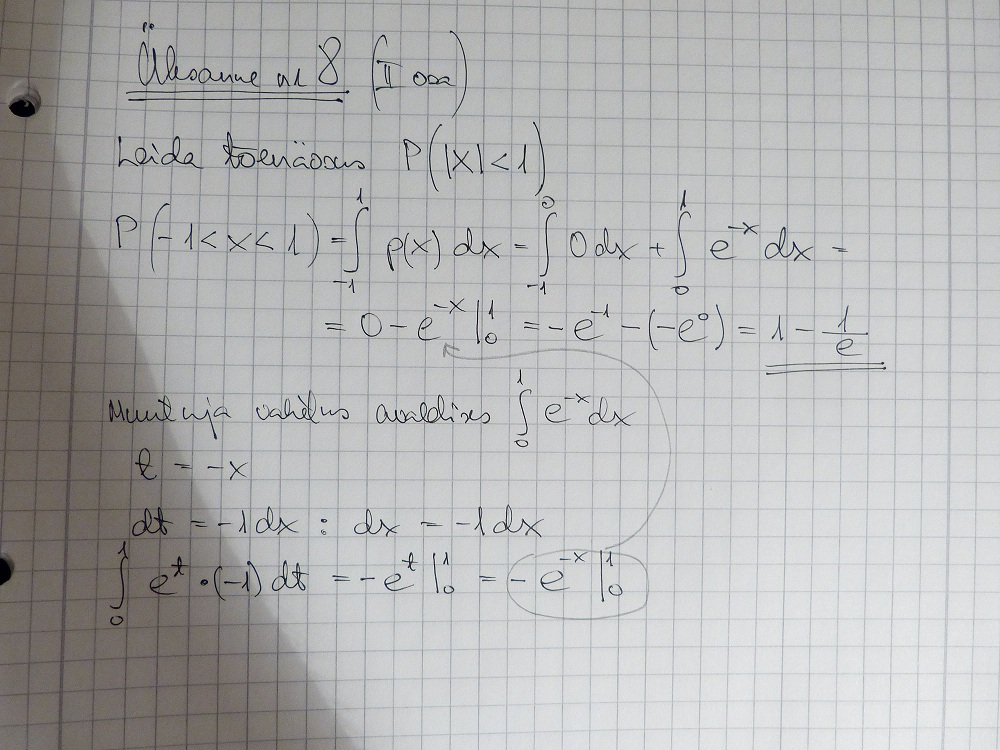 Ülesanne nr 8 (II osa)
Leida tõenäosus P(|X| < 1)
P(-1 < x < 1) = ∫₋₁¹ p(x) dx = ∫₋₁⁰ 0 dx + ∫₀¹ e⁻ˣ dx =
= 0 - e⁻ˣ |₀¹ = -e⁻¹ - (-e⁰) = 1 - 1/e
Muutuja vahetus avaldises ∫₀¹ e⁻ˣ dx
t = -x
dt = -1 dx : dx = -1 dx
∫₀¹ eᵗ · (-1) dt = -eᵗ |₀¹ = -e⁻ˣ |₀¹